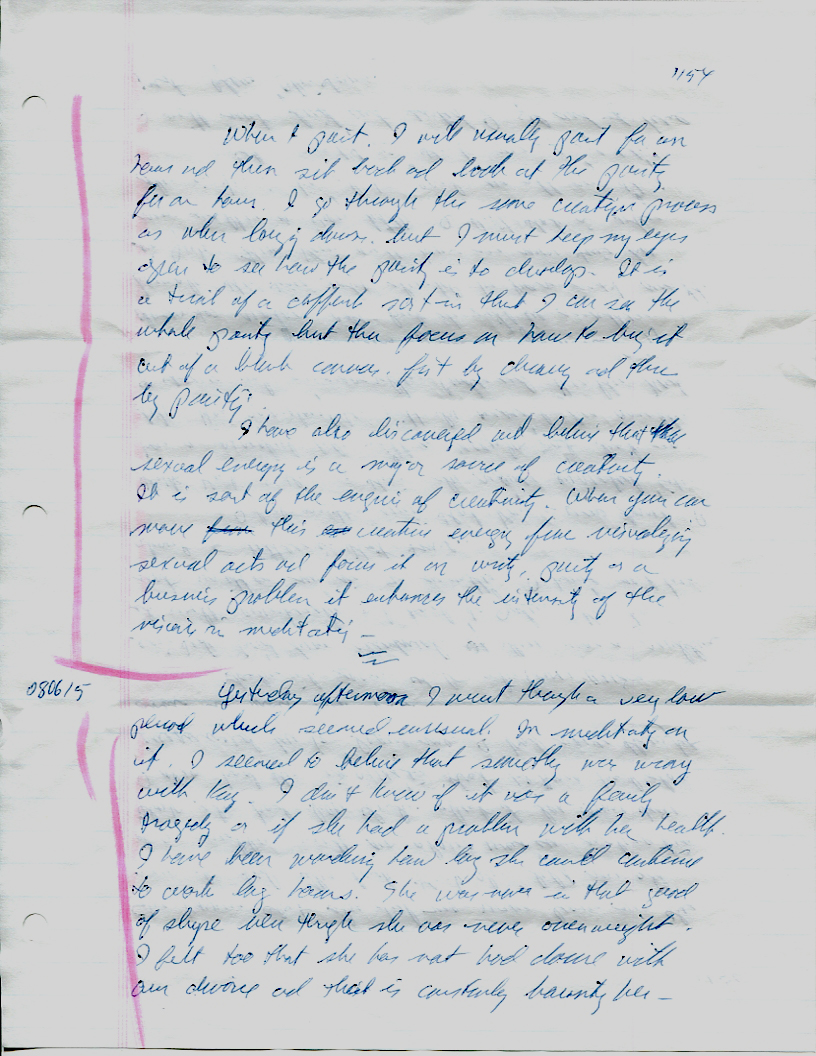 1154
When I paint, I will usually paint for an
hour and then sit back and look at the painting
for an hour. I go through the same creative process
as when lying down, but I must keep my eyes
open to see how the painting is to develop. It is
a trial of a different sort in that I can see the
whole painting but then focus on how to bring it
out of a blank canvas, first by drawing and then
by painting.
I have also discovered and believe that the
sexual energy is a major source of creativity.
It is sort of the engine of creativity. When you can
move this creative energy from visualizing
sexual acts and focus it on writing, painting or a
business problem it enhances the intensity of the
vision in meditating –
080615 Yesterday afternoon I went through a very low
period which seemed unusual. In meditating on
it, I seemed to believe that something was wrong
with Kay. I didn't know if it was a family
tragedy or if she had a problem with her health.
I have been wondering how long she could continue
to work long hours. She was never in that good
of shape even though she was never overweight.
I felt too that she has not had done with
our divorce and that is constantly haunting her –